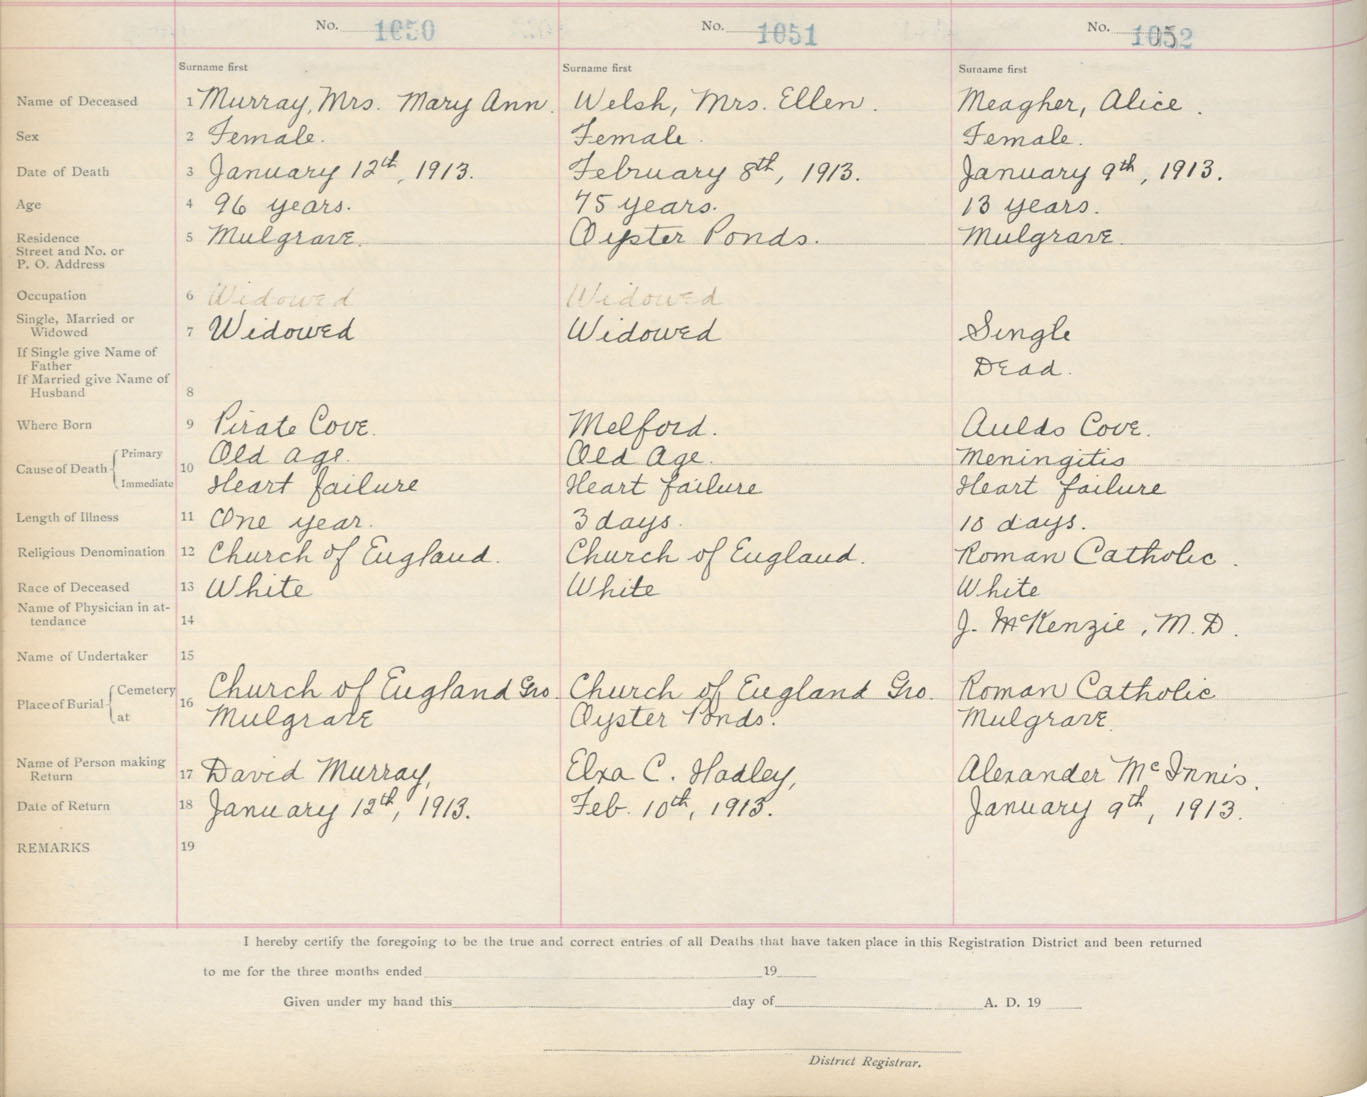 No. 1050 No. 1051 No. 1052
Surname first Surname first Surname first
Name of Deceased 1 Murray, Mrs. Mary Ann. Welsh, Mrs. Ellen. Meagher, Alice.
Sex 2 Female. Female. Female.
Date of Death 3 January 12th, 1913. February 8th, 1913. January 9th, 1913.
Age 4 96 years. 75 years. 13 years.
Residence
Street and No. or
P. O. Address 5 Mulgrave. Oyster Ponds. Mulgrave.
Occupation 6 Widowed Widowed
Single, Married or
Widowed 7 Widowed Widowed Single
If Single give Name of
Father Dead.
If Married give Name of
Husband 8
Where Born 9 Pirate Cove. Melford. Aulds Cove.
Cause of Death 10 Primary Old age. Old Age. Meningitis
Immediate Heart failure Heart failure Heart failure
Length of Illness 11 One year. 3 days. 10 days.
Religious Denomination 12 Church of England. Church of England. Roman Catholic.
Race of Deceased 13 White White White
Name of Physician in at-
tendance 14 J. McKenzie, M.D.
Name of Undertaker 15
Place of Burial 16 Cemetery Church of England Gro. Church of England Gro. Roman Catholic
at Mulgrave Oyster Ponds. Mulgrave.
Name of Person making
Return 17 David Murray, Elxa C. Hadley, Alexander McInnis.
Date of Return 18 January 12th, 1913. Feb. 10th, 1913. January 9th, 1913.
REMARKS 19
I hereby certify the foregoing to be the true and correct entries of all Deaths that have taken place in this Registration District and been returned
to me for the three months ended 19
Given under my hand this day of A. D. 19
District Registrar.